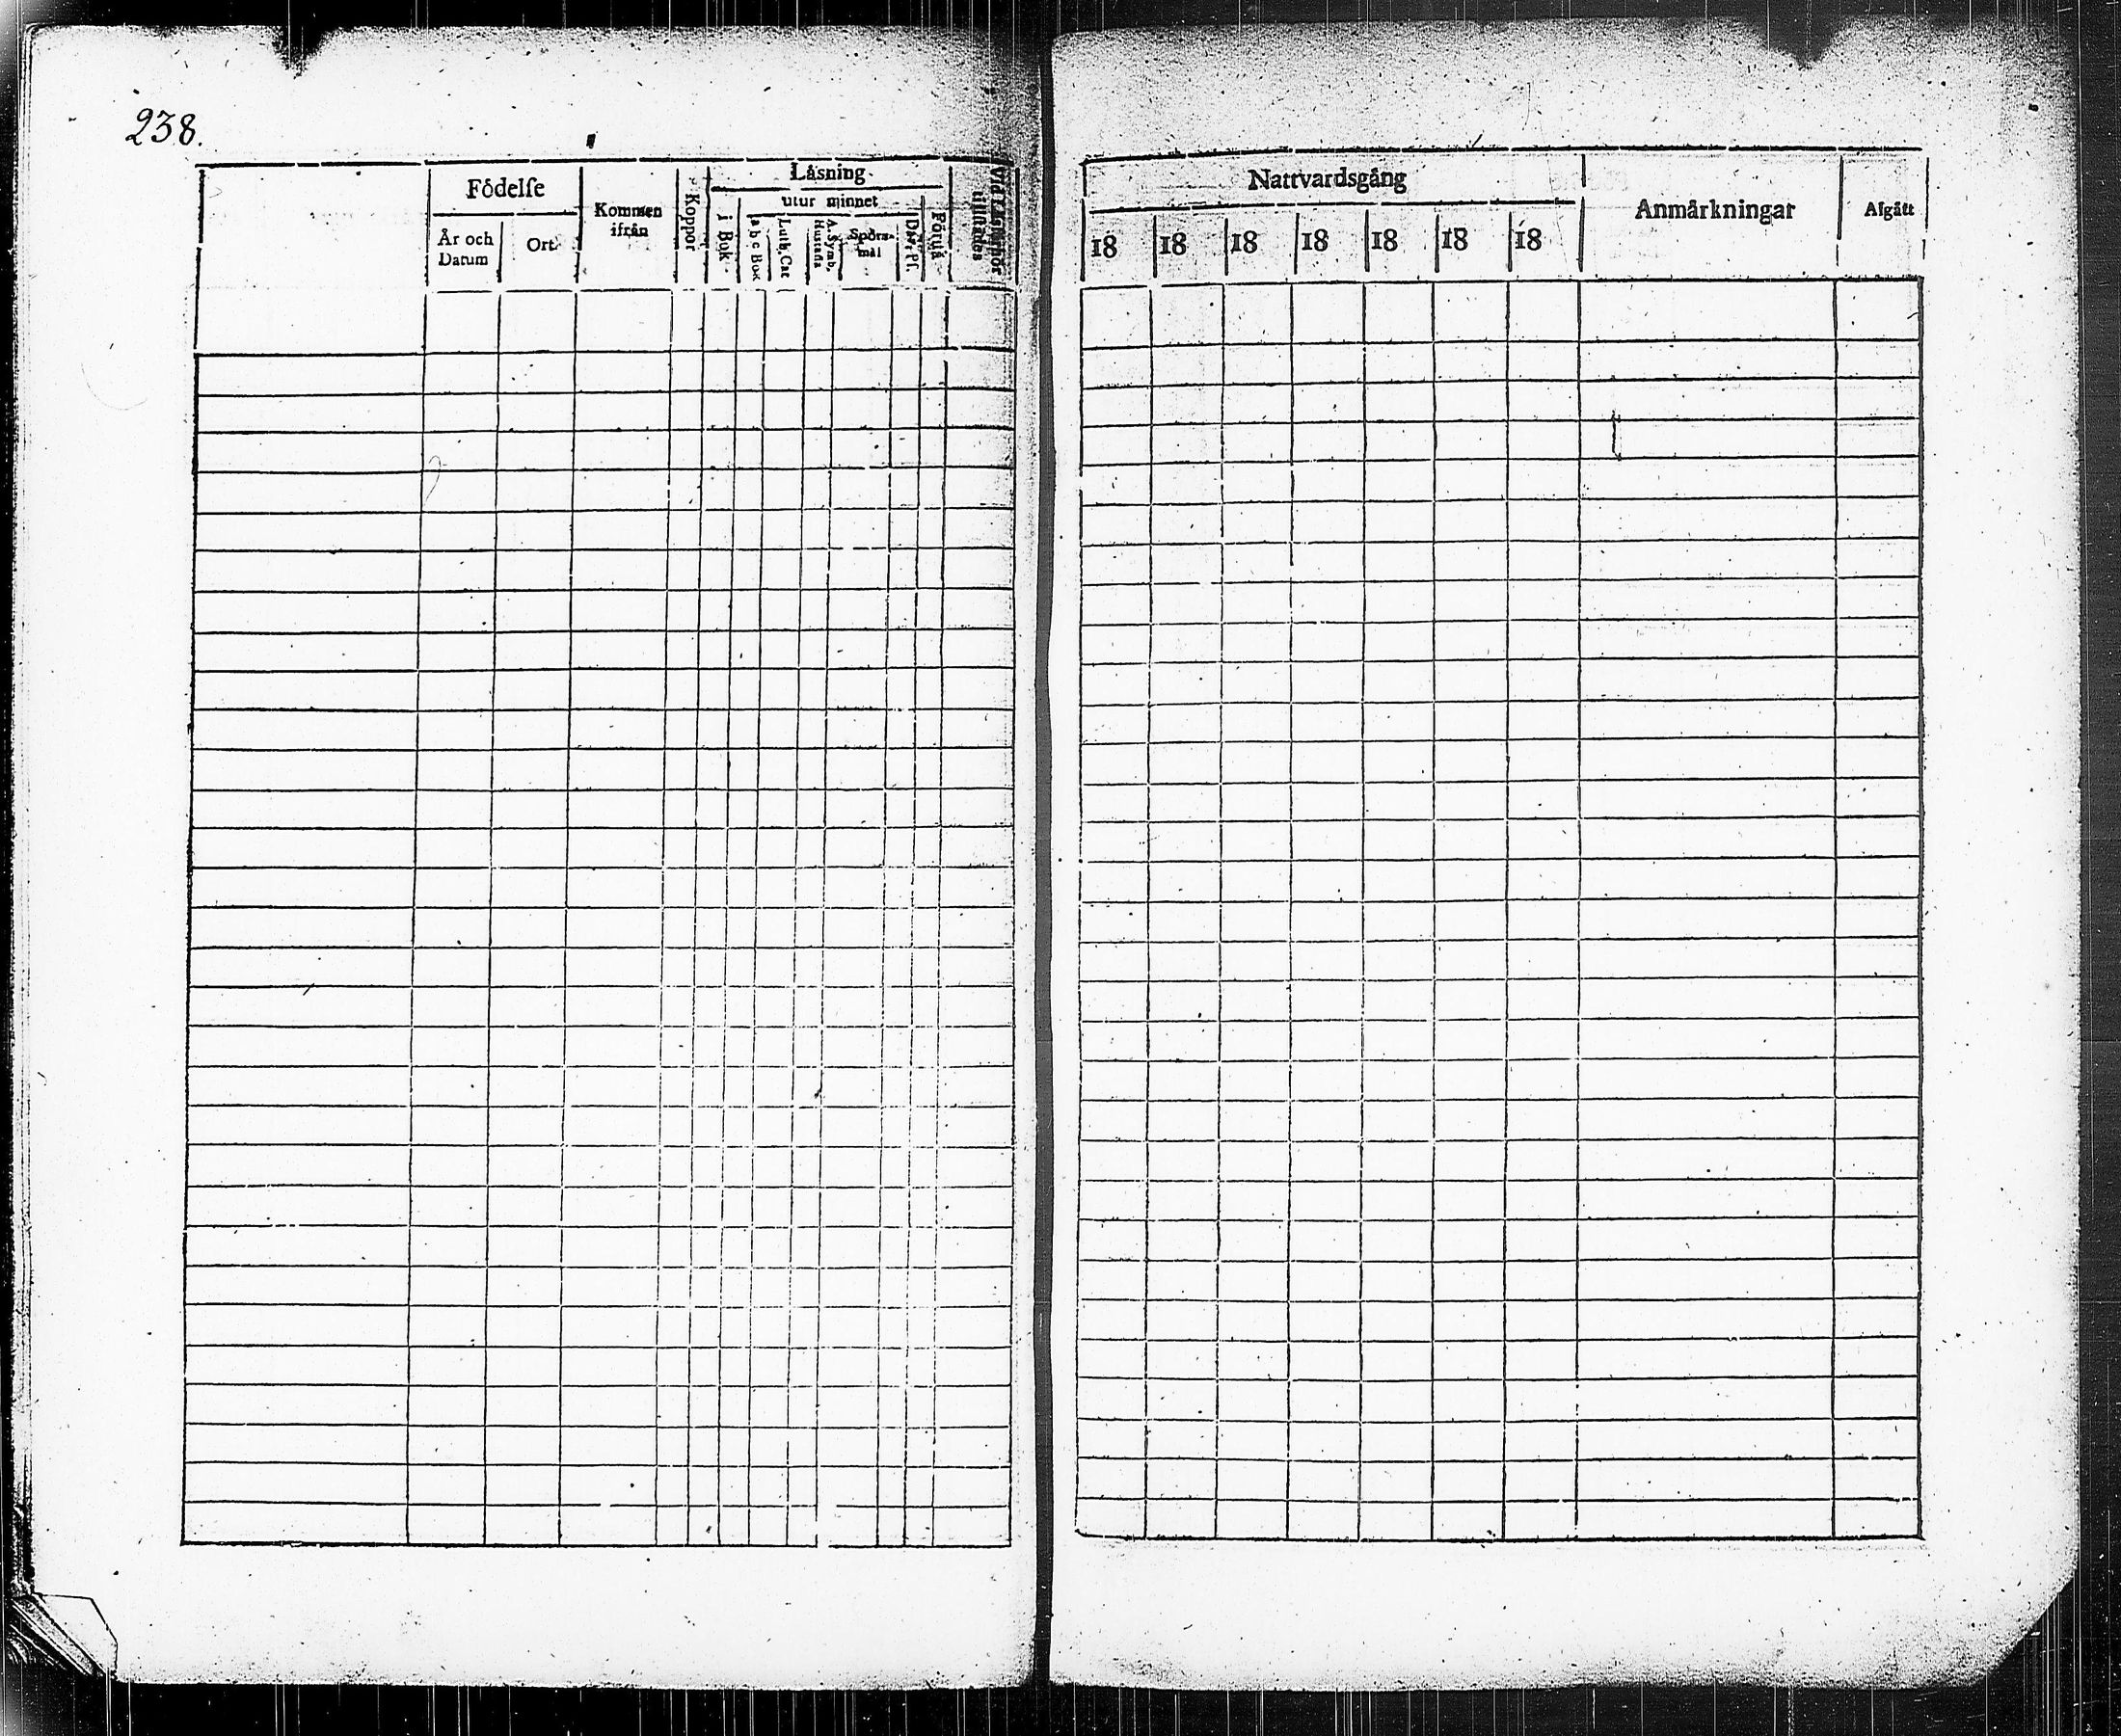 238.
Födelſe
År och Datum
Ort
Kommen ifrån
Koppor
Läsning
i Bok
utur minnet
a b c Bok
Luth. Cat
A. Symb. Hustafla
Spörsmål
Dav. Pſ.
Förstå
Vid Läsförhör tillstädes
Nattvardsgång
18 18 18 18 18 18 18
Anmärkningar
Afgått